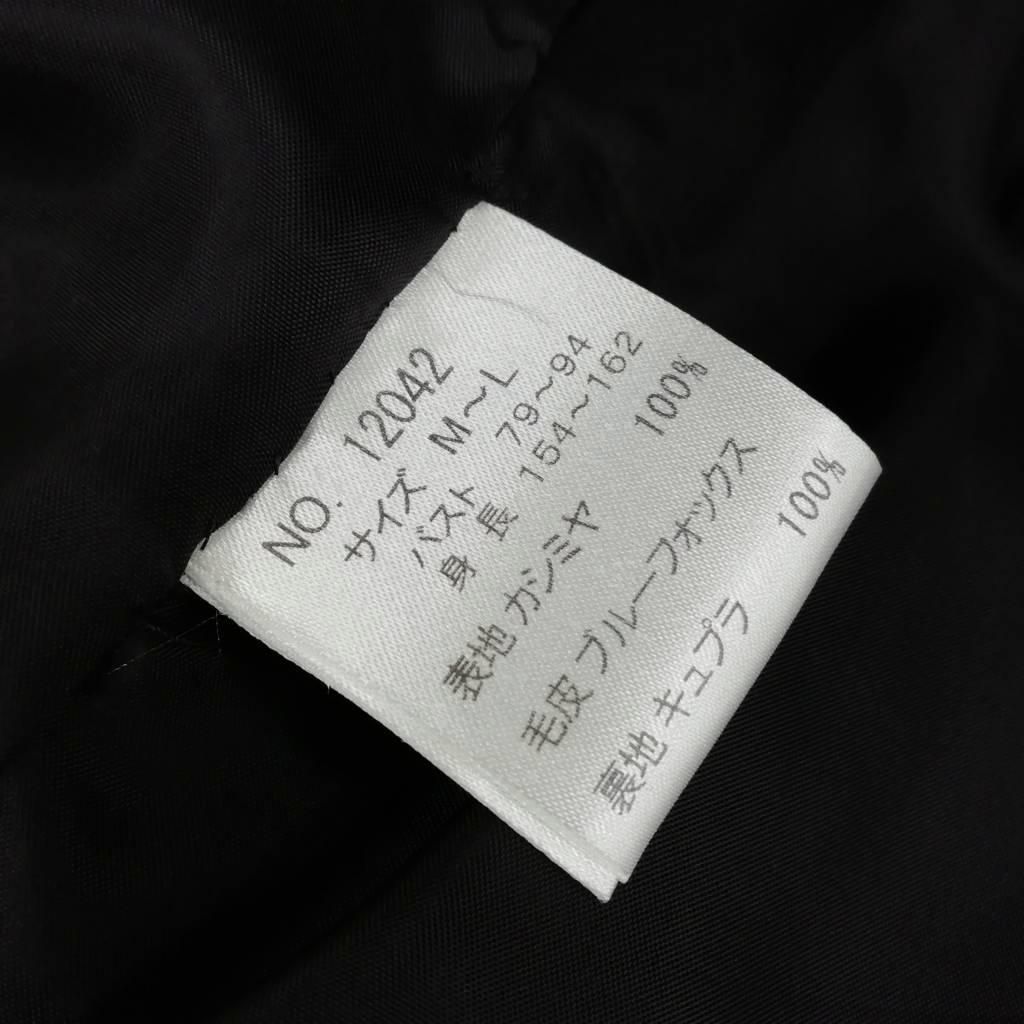 NO. 12042
サイズ M～L
バスト 79～94
身長 154～162
表地 カシミヤ 100%
毛皮 ブルーフォックス
裏地 キュプラ 100%